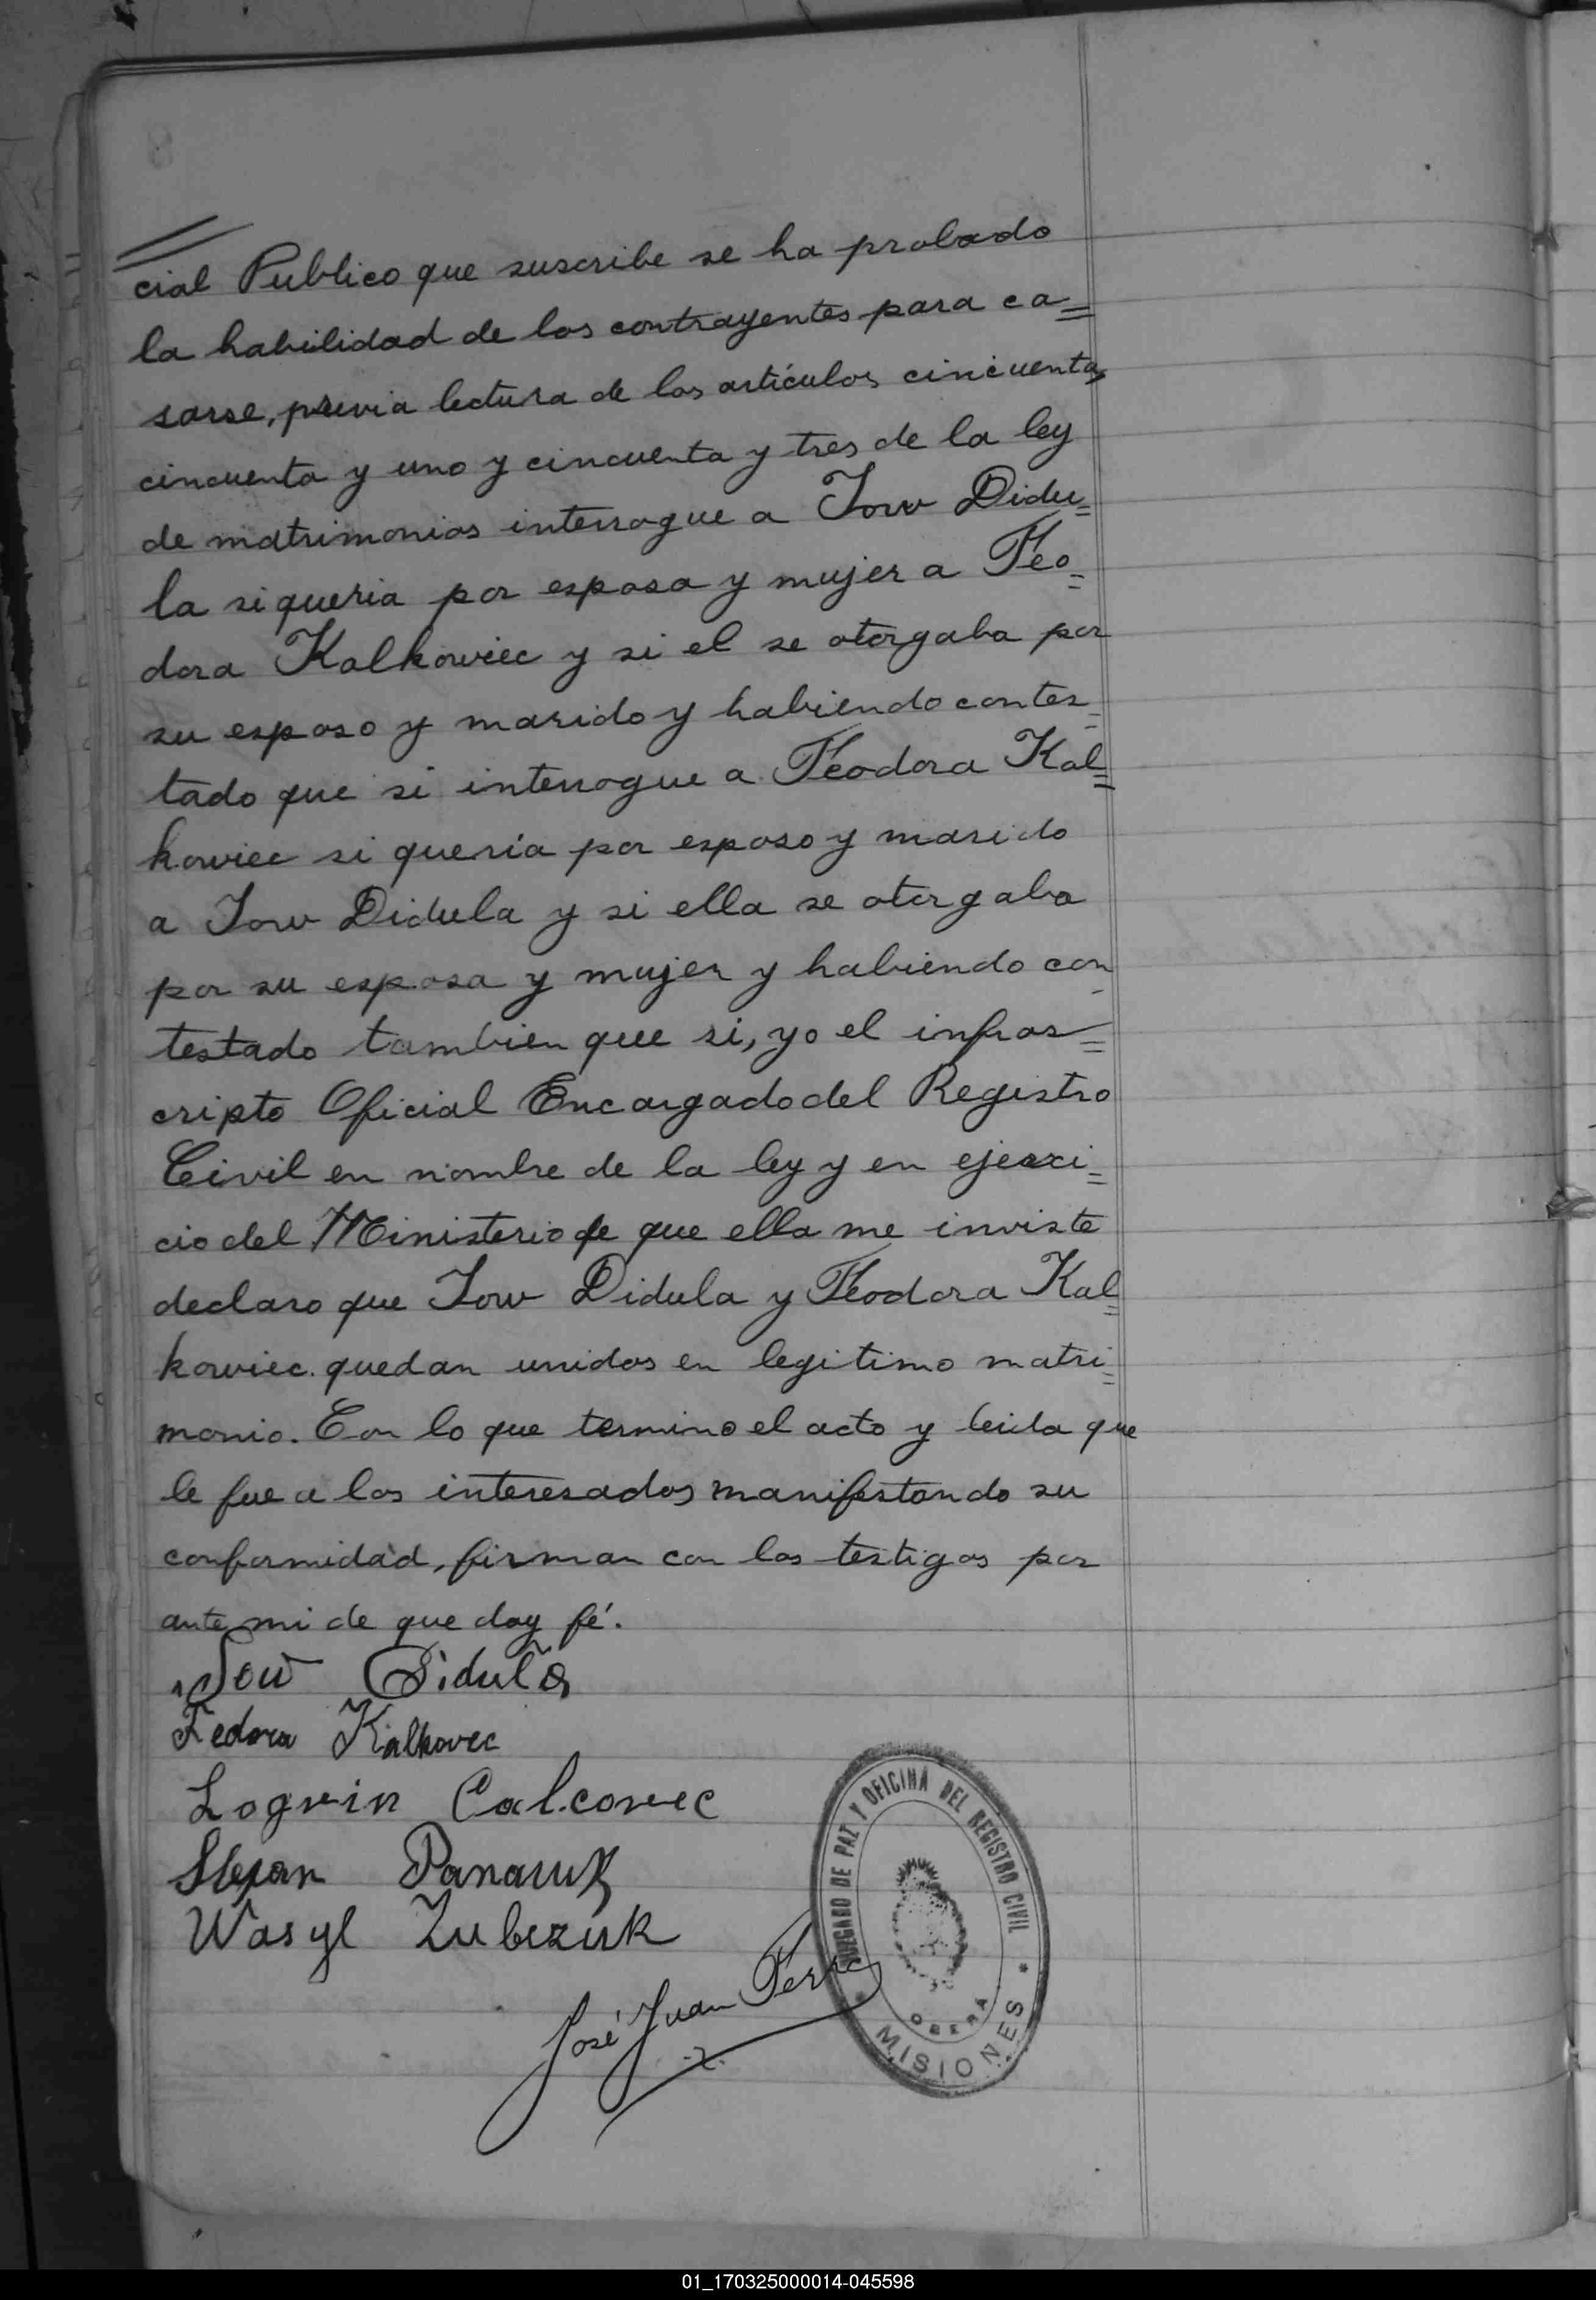 cial Publico que suscribe se ha probado
la habilidad de los contrayentes para ca=
sarse, previa lectura de los artículos cincuenta,
cincuenta y uno y cincuenta y tres de la ley
de matrimonios interrogue a Jow Didu=
la si queria por esposa y mujer a Teo=
dora Kalkowiec y si el se otorgaba por
su esposo y marido y habiendo contes=
tado que si interrogue a Teodora Kal=
kowiec si quería por esposo y marido
a Jow Didula y si ella se otorgaba
por su esposa y mujer y habiendo con-
testado tambien que si, yo el infras=
cripto Oficial Encargado del Registro
Civil en nombre de la ley y en ejerci=
cio del Ministerio de que ella me inviste
declaro que Jow Didula y Teodora Kal=
kowiec quedan unidos en legitimo matri=
monio. Con lo que termino el acto y leida que
le fue a los interesados manifestando su
conformidad, firman con los testigos por
ante mi de que doy fé.
Jow Didula
Fedora Kalkovec
Logvin Calcovec
Stepan Panasuk
Wasyl
José Juan
JUZGADO DE PAZ Y OFICINA DEL REGISTRO CIVIL
OBERA
MISIONES
01_170325000014-045598